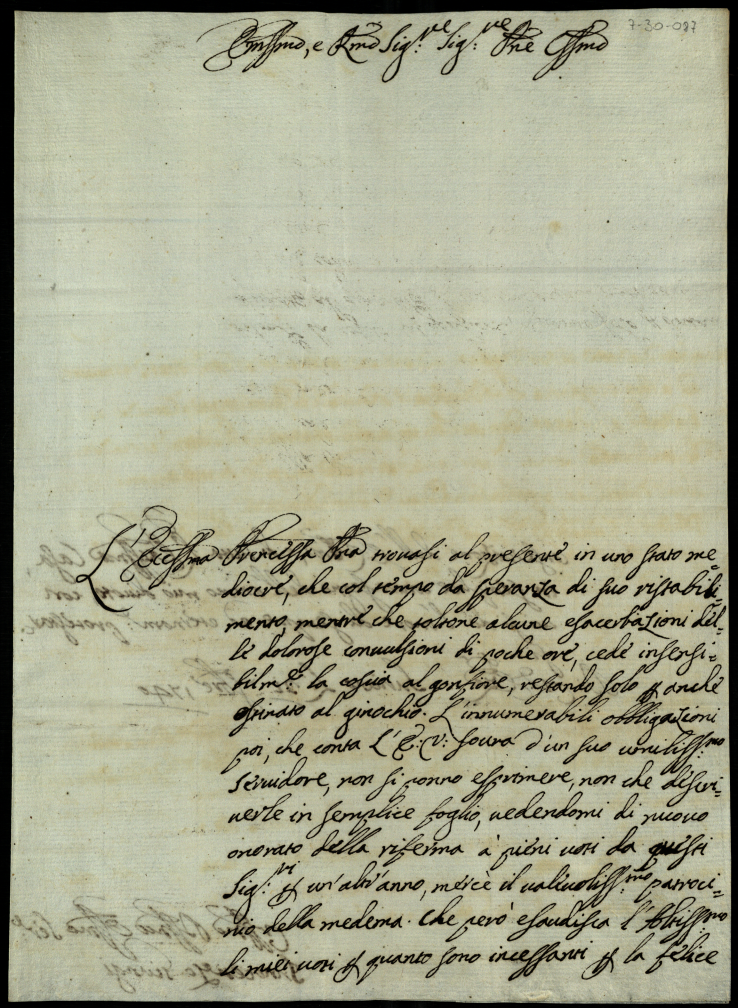 7-30-087
Emssmo, e Rmo Sig:re Sig:re Pne Cssmo
L'Eccssma Prencissa Pna trouasi al presente in uno stato me=
diocre, che col tempo da speranza di suo ristabili=
mento, mentre che toltone alcune esacerbazioni del=
le dolorose conuulsioni di poche ore, cede insensi=
bilmte la coscia al gonfiore, restando solo p anche
ostinato al ginochio. L'innumerabili obbligazioni
poi, che conta l'E: V: soura d'un suo umilissmo
Seruidore, non si ponno esprimere, non che descri=
uerle in semplice foglio, uedendomi di nuouo
onorato della riferma à pieni uoti da questi
Sig:ri p un'altr'anno, mercè il ualiuolissmo patroci=
nio della medema. Che però esaudisca l'Altissmo
li miei uoti p quanto sono incessanti p la felice